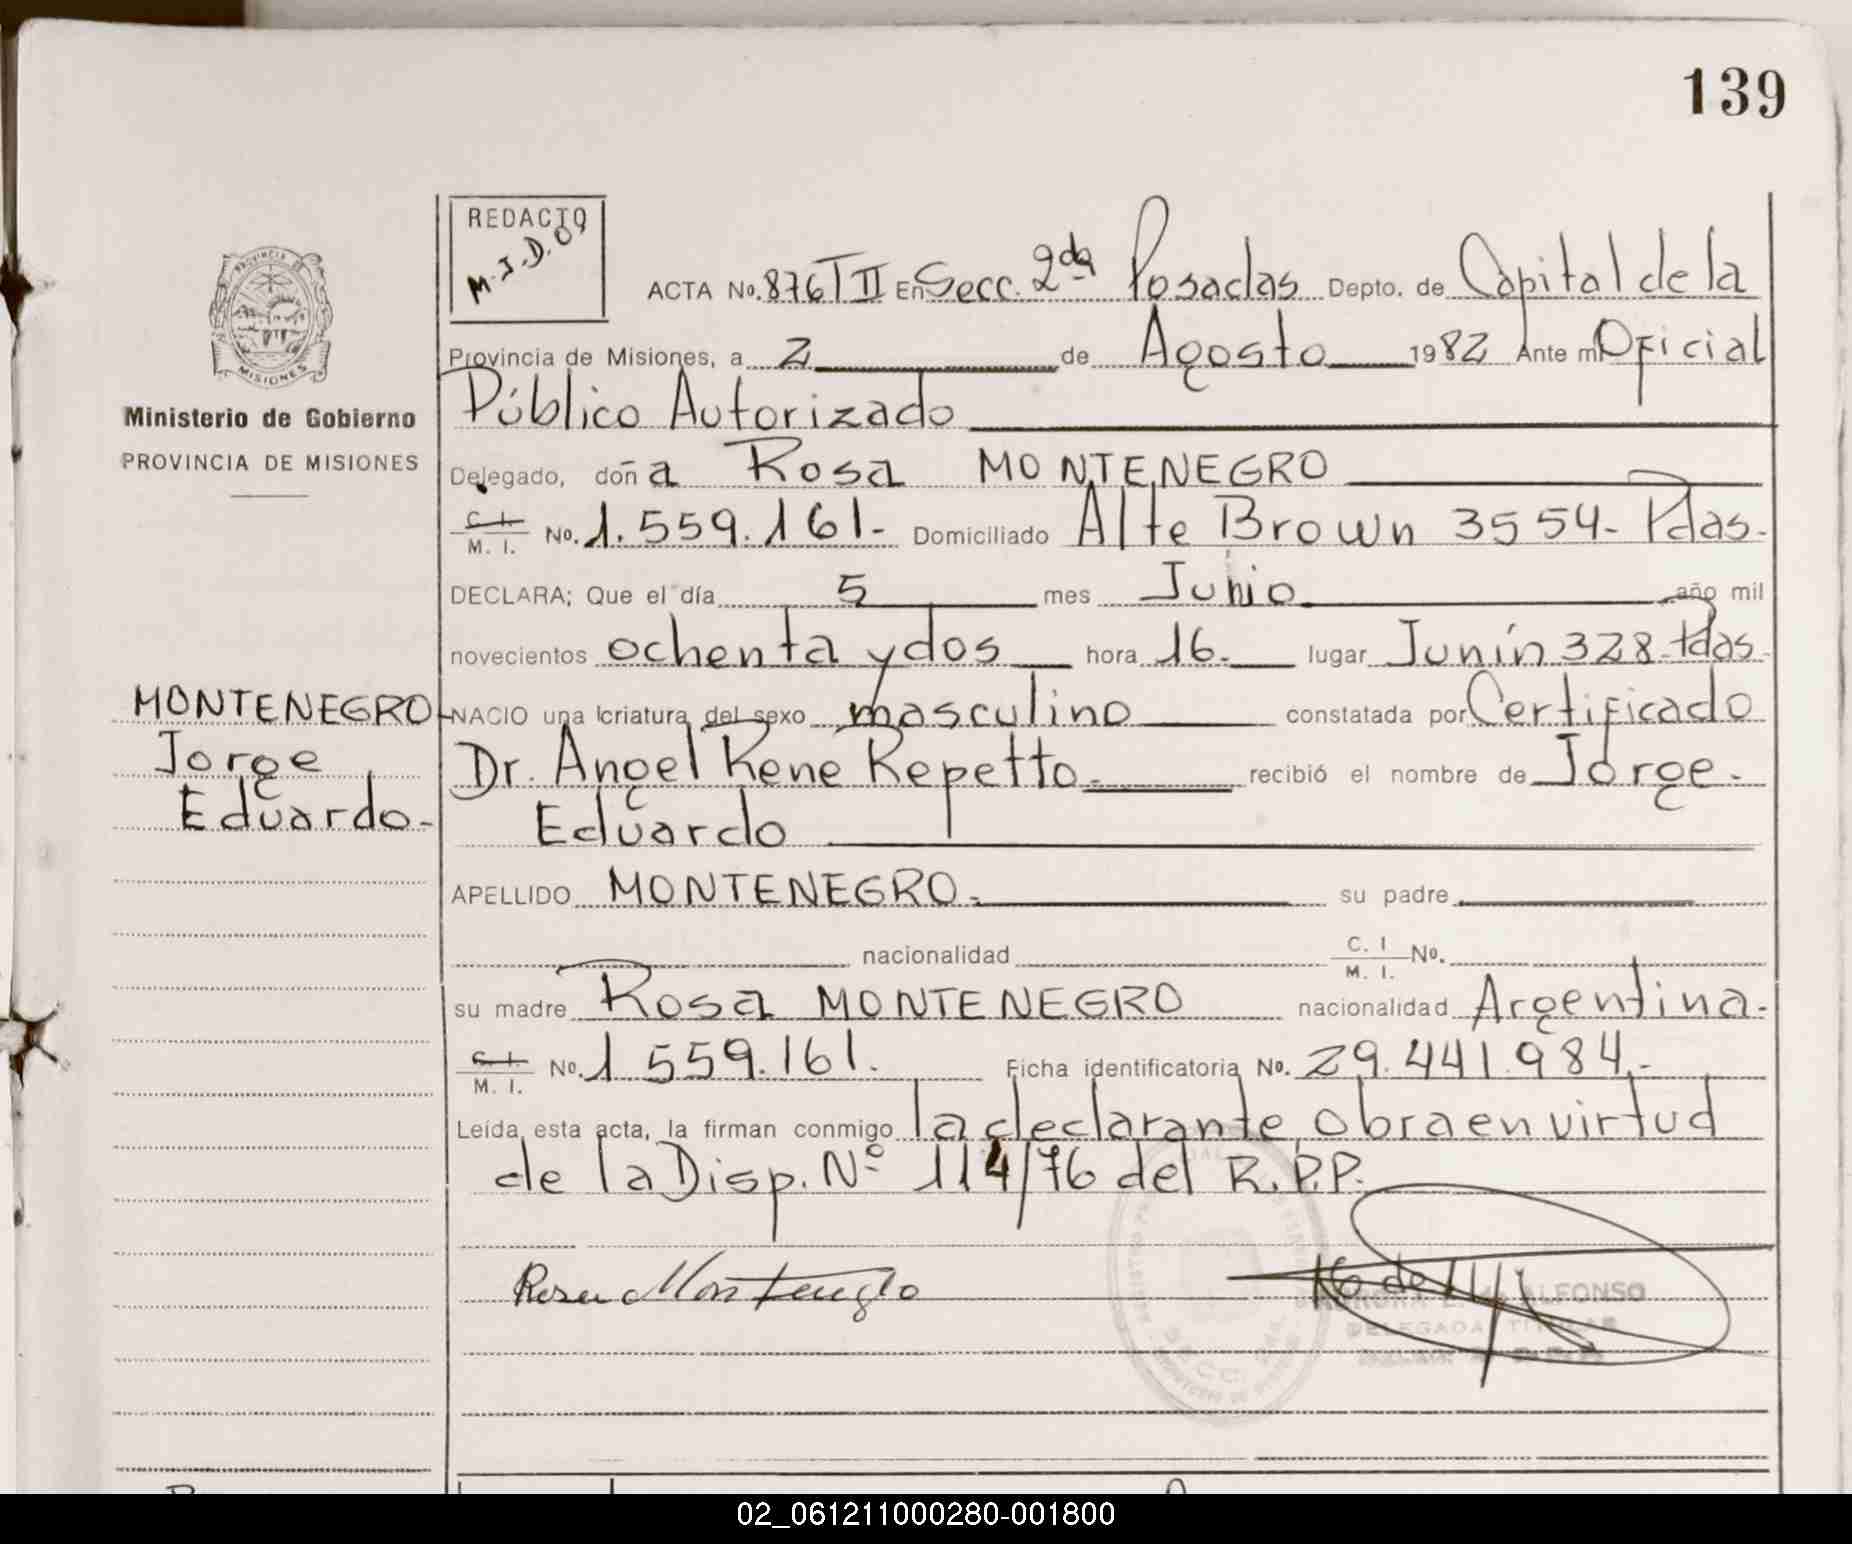 139
REDACTO
M.J.D.09
ACTA No. 876 T II En Secc. 2da Posadas Depto. de Capital de la
Provincia de Misiones, a 2 de Agosto 1982 Ante mi Oficial
Público Autorizado
Delegado, doña Rosa MONTENEGRO
C. I. M. I. No. 1.559.161.- Domiciliado Alte Brown 3554- Pdas.
DECLARA; Que el día 5 mes Junio año mil
novecientos ochenta y dos hora 16. lugar Junín 328 Pdas.
NACIO una criatura del sexo masculino constatada por Certificado
Dr. Angel Rene Repetto. recibió el nombre de Jorge.
Eduardo
APELLIDO MONTENEGRO. su padre
nacionalidad C. I M. I. No.
su madre Rosa MONTENEGRO nacionalidad Argentina.
C. I. M. I. No. 1 559.161. Ficha identificatoria No. 29.441.984.-
Leída esta acta, la firman conmigo la declarante, obra en virtud
de la Disp. Nº 114/76 del R.P.P.
Rosa Montenegro
ALFONSO
DELEGADA TITULAR
PROVINCIA DE
MISIONES
Ministerio de Gobierno
PROVINCIA DE MISIONES
MONTENEGRO
Jorge
Eduardo.-
02_061211000280-001800